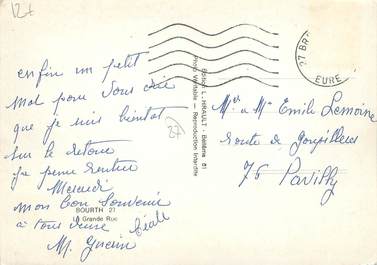 12+
enfin un petit
mot pour vous dire
que je suis bientot
sur le retour
je pense rentrer
Mercredi
mon bon souvenir
à tous deux
M. Guerin
BOURTH 27
La Grande Rue
27
Edition L. HIRAULT - Bélâtre 61
Photo Véritable — Reproduction Interdite
27 BR
EURE
Mr & Me Emile Lemoine
route de Goupillières
76 Pavilly